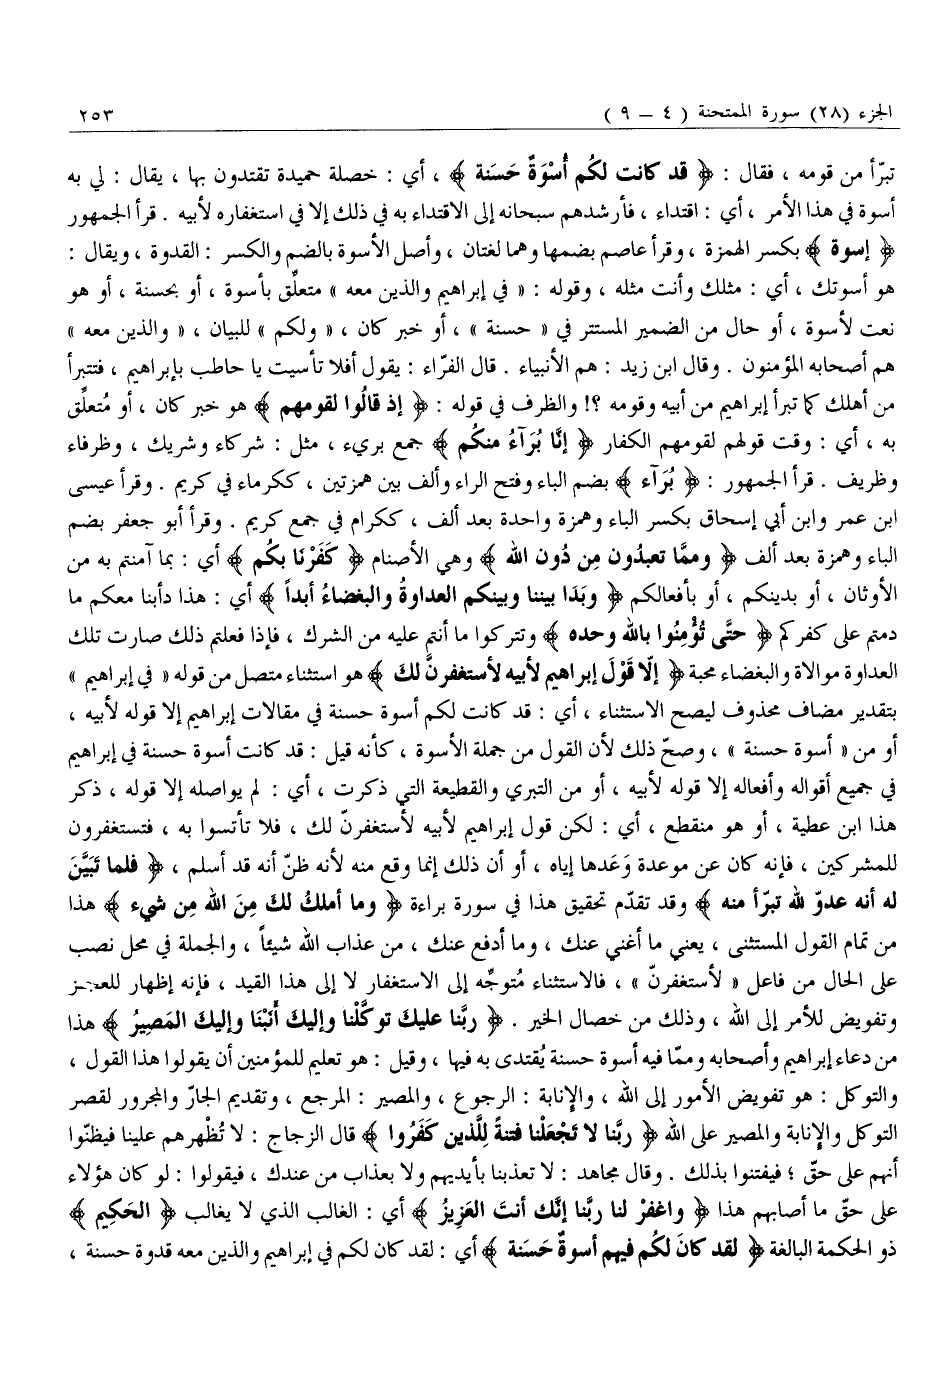 الجزء (٢٨) سورة الممتحنة ( ٤ – ٩ ) ٢٥٣
تبرّأ من قومه ، فقال : ﴿ قد كانت لكُم أُسْوَةٌ حَسَنة ﴾ ، أي : خصلة حميدة تقتدون بها ، يقال : لي به
أسوة في هذا الأمر ، أي : اقتداء ، فأرشدهم سبحانه إلى الاقتداء به في ذلك إلا في استغفاره لأبيه . قرأ الجمهور
﴿ إسوة ﴾ بكسر الهمزة ، وقرأ عاصم بضمها وهما لغتان ، وأصل الأسوة بالضم والكسر : القدوة ، ويقال :
هو أسوتك ، أي : مثلك وأنت مثله ، وقوله : « في إبراهيم والذين معه » متعلِّق بأسوة ، أو بحسنة ، أو هو
نعت لأسوة ، أو حال من الضمير المستتر في « حسنة » ، أو خبر كان ، « ولكم » للبيان ، « والذين معه »
هم أصحابه المؤمنون . وقال ابن زيد : هم الأنبياء . قال الفرّاء : يقول أفلا تأسيت يا حاطب بإبراهيم ، فتتبرأ
من أهلك كما تبرأ إبراهيم من أبيه وقومه ؟! والظرف في قوله : ﴿ إذ قالُوا لقومهم ﴾ هو خبر كان ، أو مُتعلِّق
به ، أي : وقت قولهم لقومهم الكفار ﴿ إنَّا بُرَآءُ منكُم ﴾ جمع بريء ، مثل : شركاء وشريك ، وظرفاء
وظريف . قرأ الجمهور : ﴿ بُرَآء ﴾ بضم الباء وفتح الراء وألف بين همزتين ، ككرماء في كريم . وقرأ عيسى
ابن عمر وابن أبي إسحاق بكسر الباء وهمزة واحدة بعد ألف ، ككرام في جمع كريم . وقرأ أبو جعفر بضم
الباء وهمزة بعد ألف ﴿ وممَّا تعبدُون مِن دُون الله ﴾ وهي الأصنام ﴿ كَفَرْنَا بكُم ﴾ أي : بما آمنتم به من
الأوثان ، أو بدينكم ، أو بأفعالكم ﴿ وبَدَا بيننا وبينكم العداوةُ والبغضاءُ أبداً ﴾ أي : هذا دأبنا معكم ما
دمتم على كفركم ﴿ حتَّى تُؤْمِنُوا بالله وحده ﴾ وتتركوا ما أنتم عليه من الشرك ، فإذا فعلتم ذلك صارت تلك
العداوة موالاة والبغضاء محبة ﴿ إلّا قوْلَ إبراهيم لأبيه لأستغفرنَّ لكَ ﴾ هو استثناء متصل من قوله « في إبراهيم »
بتقدير مضاف محذوف ليصح الاستثناء ، أي : قد كانت لكم أسوة حسنة في مقالات إبراهيم إلا قوله لأبيه ،
أو من « أسوة حسنة » ، وصحّ ذلك لأن القول من جملة الأسوة ، كأنه قيل : قد كانت أسوة حسنة في إبراهيم
في جميع أقواله وأفعاله إلا قوله لأبيه ، أو من التبري والقطيعة التي ذكرت ، أي : لم يواصله إلا قوله ، ذكر
هذا ابن عطية ، أو هو منقطع ، أي : لكن قول إبراهيم لأبيه لأستغفرنّ لك ، فلا تأتسوا به ، فتستغفرون
للمشركين ، فإنه كان عن موعدة وَعَدها إياه ، أو أن ذلك إنما وقع منه لأنه ظنّ أنه قد أسلم ، ﴿ فلما تَبيَّنَ
له أنه عدوّ لله تبرّأ منه ﴾ وقد تقدّم تحقيق هذا في سورة براءة ﴿ وما أملكُ لكَ مِنَ الله مِن شيء ﴾ هذا
من تمام القول المستثنى ، يعني ما أغني عنك ، وما أدفع عنك ، من عذاب الله شيئاً ، والجملة في محل نصب
على الحال من فاعل « لأستغفرنّ » ، فالاستثناء مُتوجِّه إلى الاستغفار لا إلى هذا القيد ، فإنه إظهار للعجز
وتفويض للأمر إلى الله ، وذلك من خصال الخير . ﴿ ربَّنا عليكَ توكَّلْنا وإليكَ أَنَبْنَا وإليكَ المَصِيرُ ﴾ هذا
من دعاء إبراهيم وأصحابه وممّا فيه أسوة حسنة يُقتدى به فيها ، وقيل : هو تعليم للمؤمنين أن يقولوا هذا القول ،
والتوكل : هو تفويض الأمور إلى الله ، والإنابة : الرجوع ، والمصير : المرجع ، وتقديم الجارّ والمجرور لقصر
التوكل والإنابة والمصير على الله ﴿ ربَّنا لا تَجْعَلْنا فتنةً لِلَّذين كَفَرُوا ﴾ قال الزجاج : لا تُظْهرهم علينا فيظنّوا
أنهم على حقّ ؛ فيفتنوا بذلك . وقال مجاهد : لا تعذبنا بأيديهم ولا بعذاب من عندك ، فيقولوا : لو كان هؤلاء
على حقّ ما أصابهم هذا ﴿ واغفرْ لنا ربَّنا إنَّك أنتَ العَزِيزُ ﴾ أي : الغالب الذي لا يغالب ﴿ الحَكِيم ﴾
ذو الحكمة البالغة ﴿ لقد كانَ لكُم فيهم أسوةٌ حَسَنة ﴾ أي : لقد كان لكم في إبراهيم والذين معه قدوة حسنة ،